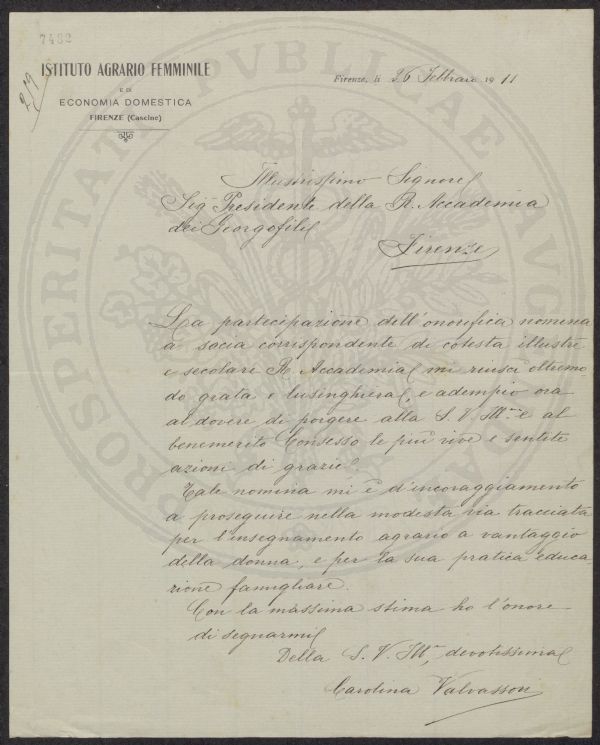 7482
219
ISTITUTO AGRARIO FEMMINILE
E DI
ECONOMIA DOMESTICA
FIRENZE (Cascine)
Firenze, li 26 Febbraio 1911
Illustrissimo Signore
Sig. Presidente della R. Accademia
dei Georgofili
Firenze
La partecipazione dell'onorifica nomina
a socia corrispondente di cotesta illustre
e secolare R. Accademia mi riuscì oltremo-
do grata e lusinghiera, e adempio ora
al dovere di porgere alla S. V. Ill.ma e al
benemerito Consesso le più vive e sentite
azioni di grazie.
Tale nomina mi è d'incoraggiamento
a proseguire nella modesta via tracciata
per l'insegnamento agrario a vantaggio
della donna, e per la sua pratica educa-
zione famigliare.
Con la massima stima ho l'onore
di segnarmi
Della S. V. Ill.ma devotissima
Carolina Valvassori
PROSPERITATI PVBLICAE AVGENDAE